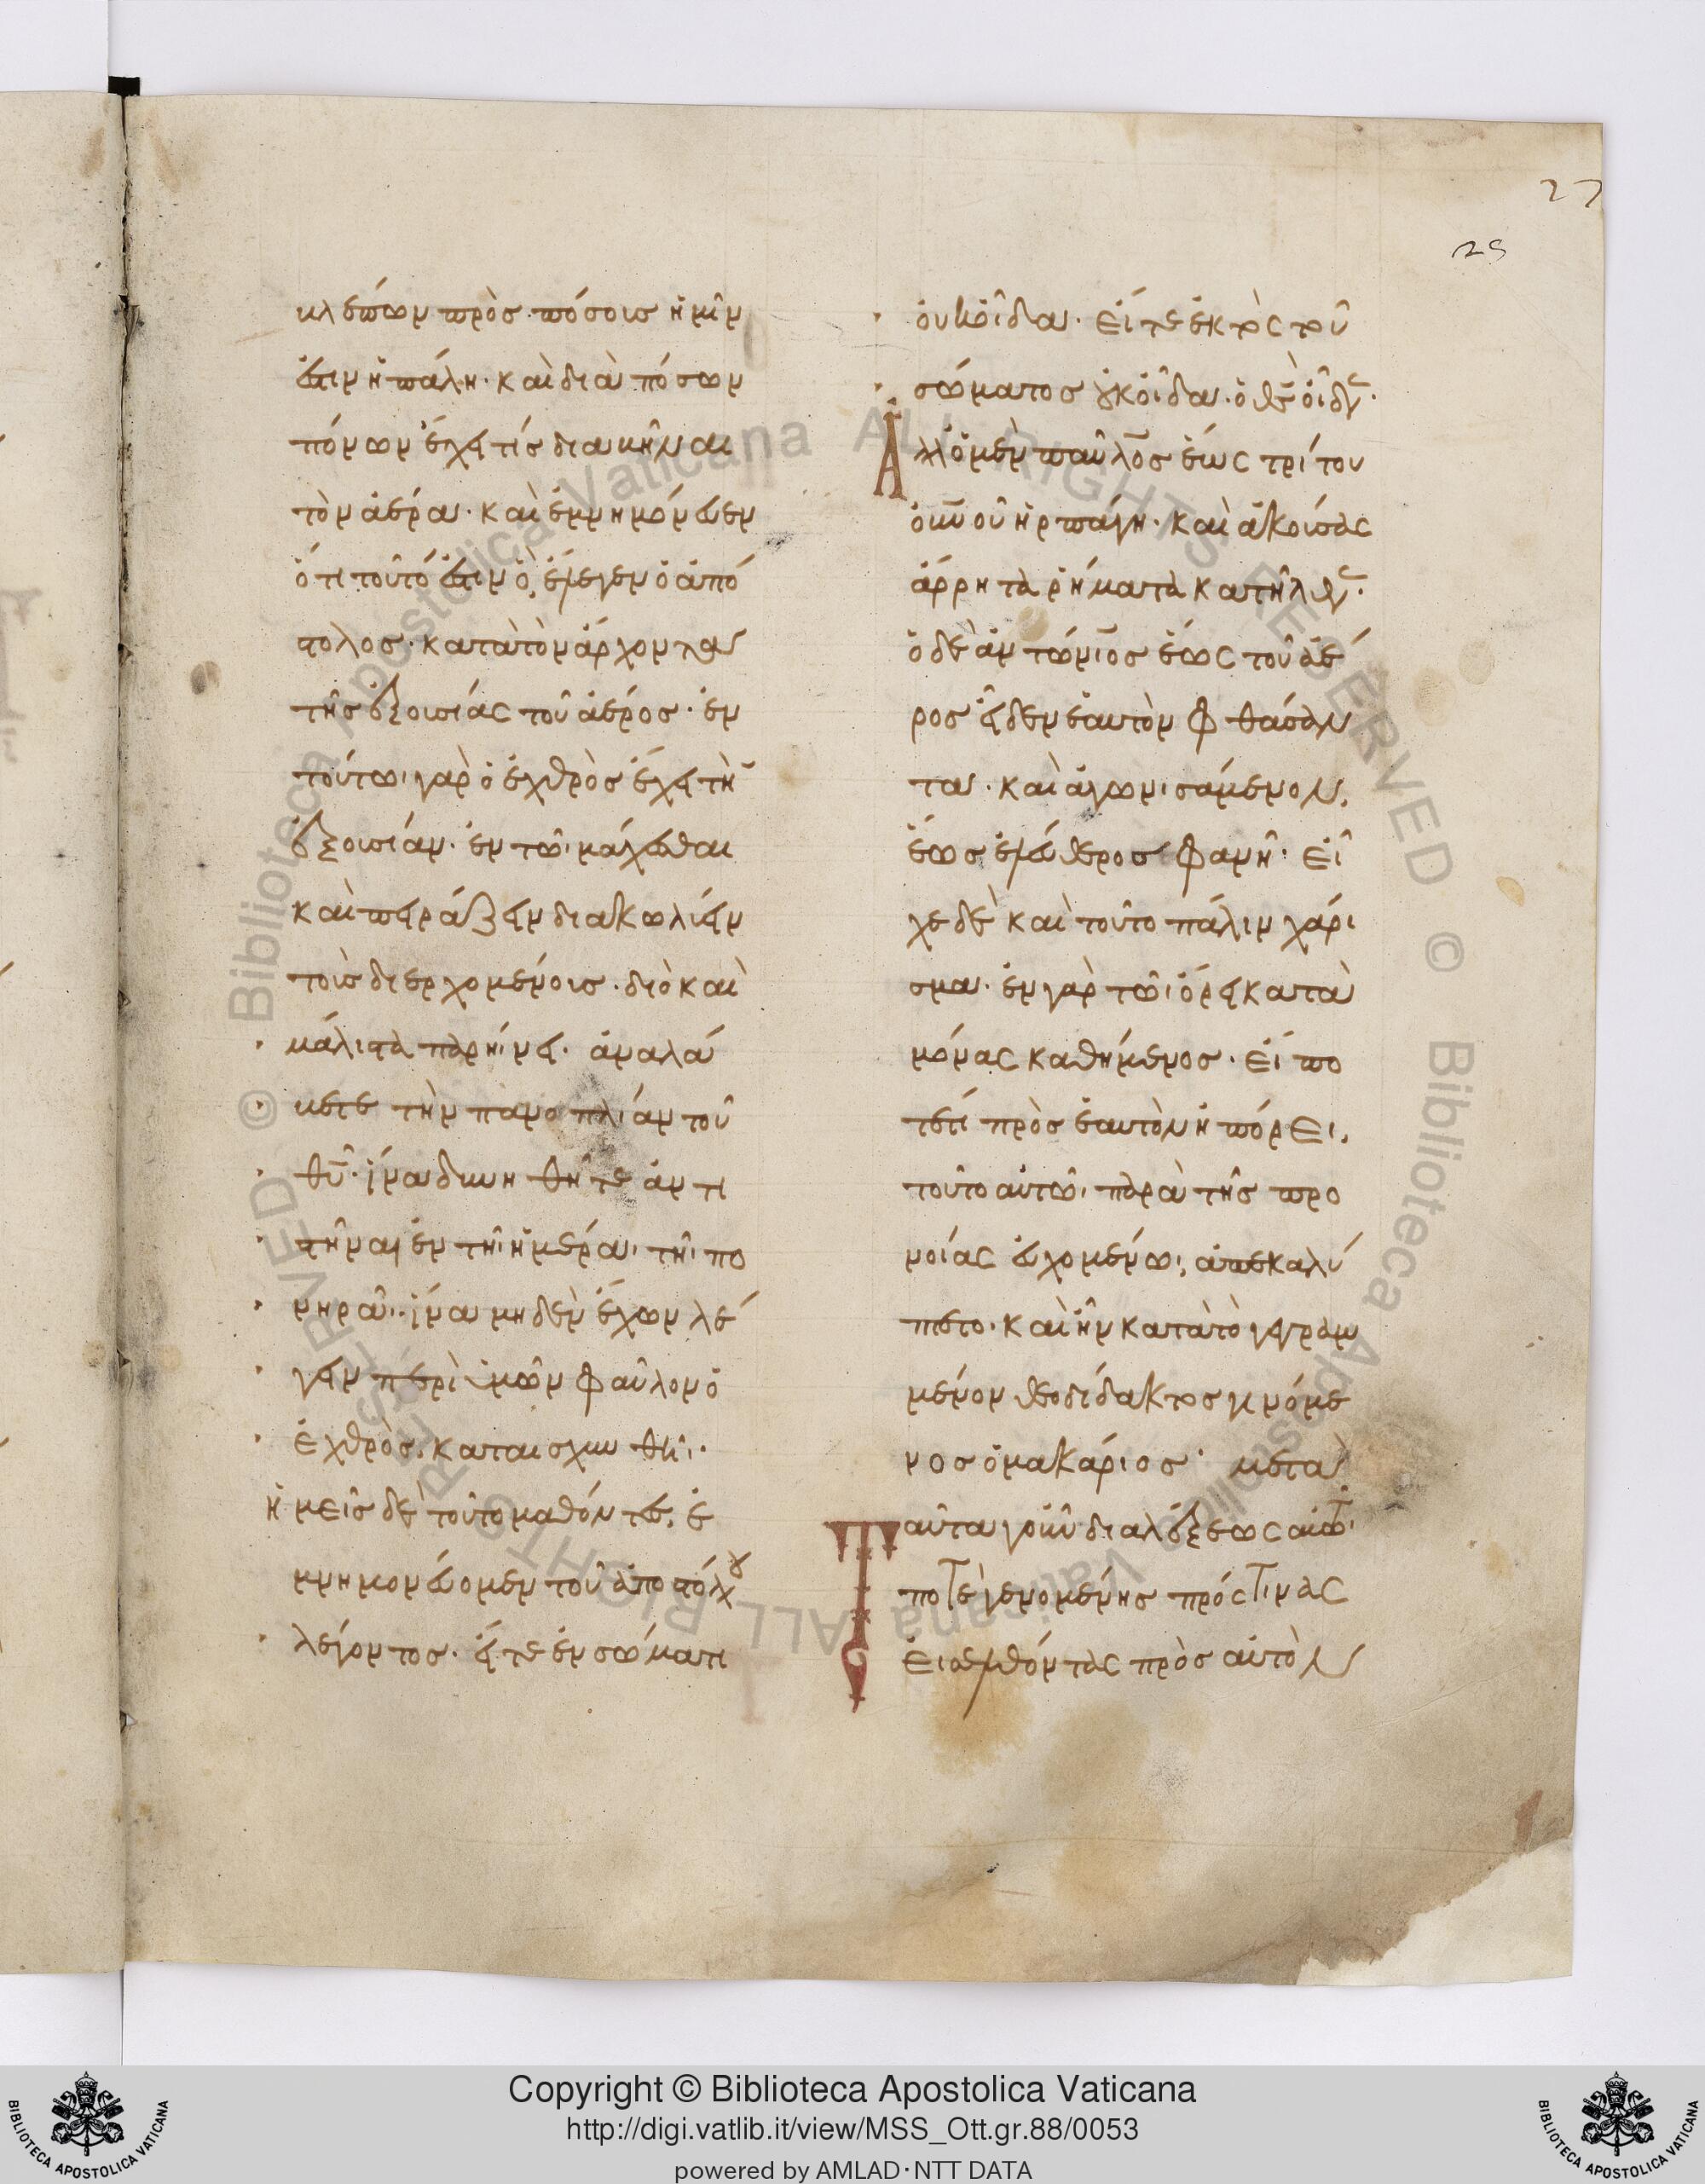 27
25
κλέπων πρὸς πόσους ἡμῖν
ἐστιν ἡ πάλη· καὶ διὰ πόσων
πόνων ἔχει τίς διαβῆναι
τὸν ἀέρα· καὶ ἐμνημόνευεν
ὅτι τοῦτό ἐστιν ὃ, ἔλεγεν ὁ ἀπό
στολος· κατὰ τὸν ἄρχοντα
τῆς ἐξουσίας τοῦ ἀέρος· ἐν
τούτωι γὰρ ὁ ἐχθρὸς ἔχει τὴ̄
ἐξουσίαν· ἐν τῶι μάχεσθαι
καὶ πειράζειν διακωλύειν
τοὺς διερχομένους· διὸ καὶ
μάλιστα παρήινει· ἀναλά
βετε τὴν πανοπλίαν τοῦ
θῡ· ἵνα δυνηθῆτε ἀντι
στῆναι ἐν τῆι ἡμέραι τῆι πο
νηρᾶι· ἵνα μηδὲν ἔχων λέ
γειν περὶ ἡμῶν φαῦλον ὁ
ἐχθρὸς· καταισχυνθῆι·
ἡμεῖς δὲ τοῦτο μαθόντες, ἐ
μνημονεύομεν τοῦ ἀποστόλου
λέγοντος· εἴτε ἐν σώματι
οὐκ οἶδα· εἴτε ἐκτὸς τοῦ
σώματος οὐκ οἶδα· ὁ θς̄ οἶδεν·
Ἀλλ' ὁ μὲν παῦλος ἕως τρίτου
οὐνοῦ ἡρπάγη· καὶ ἀκούσας
ἄρρητα ῥήματα κατῆλθεν·
ὁ δὲ ἀντώνιος ἕως τοῦ ἀέ
ρος εἶδεν ἑαυτὸν φθάσαν
τα· καὶ ἀγωνισάμενον,
ἕως ἐλεύθερος φανῆ· εἶ
χε δὲ καὶ τοῦτο πάλιν χάρι
σμα· ἐν γὰρ τῶι ὄρει κατὰ
μόνας καθήμενος· εἴ πο
τέ τι πρὸς ἑαυτὸν ἠπόρει,
τοῦτο αὐτῶι παρὰ τῆς προ
νοίας εὐχομένωι, ἀπεκαλύ
πτετο· καὶ ἦν κατὰ τὸ γεγραμ
μένον θεοδίδακτος γινόμε
νος ὁ μακάριος· μετὰ
Ταῦτα γοῦν διαλέξεως αὐτῶι
ποτὲ γενομένης πρός τινας
εἰσελθόντας πρὸς αὐτὸν
Copyright © Biblioteca Apostolica Vaticana
http://digi.vatlib.it/view/MSS_Ott.gr.88/0053
powered by AMLAD·NTT DATA